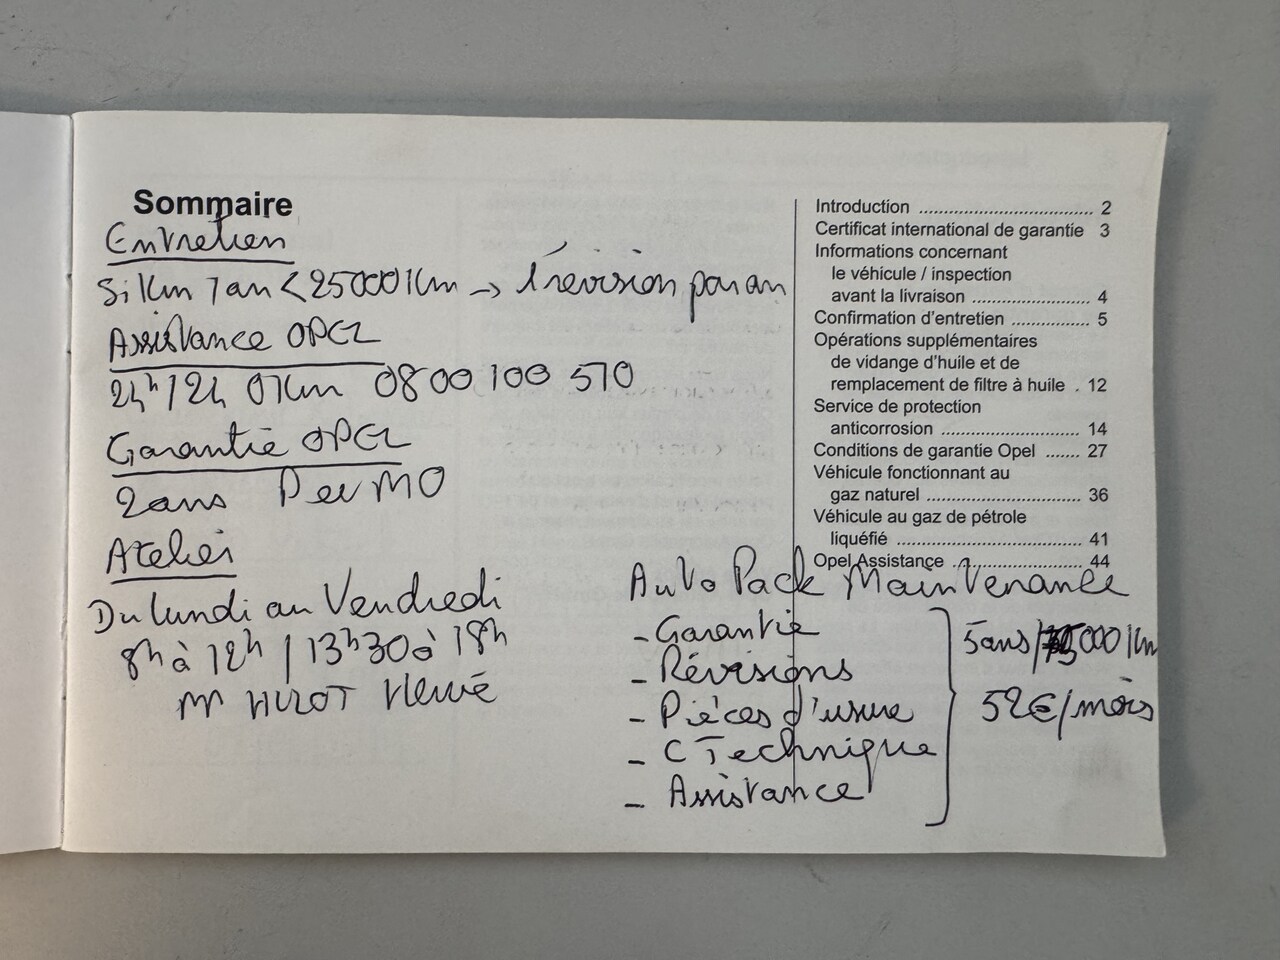 Sommaire
Entretien
Si Km 1 an < 25000 Km → 1 révision par an
Assistance OPEL
24h/24 0 Km 0800 100 510
Garantie OPEL
2ans P et MO
Atelier
Du lundi au Vendredi
8h à 12h / 13h30 à 18h
Mr HUZOT Hervé
Introduction .................................... 2
Certificat international de garantie 3
Informations concernant
le véhicule / inspection
avant la livraison ........................ 4
Confirmation d'entretien ................ 5
Opérations supplémentaires
de vidange d'huile et de
remplacement de filtre à huile . 12
Service de protection
anticorrosion ............................ 14
Conditions de garantie Opel ....... 27
Véhicule fonctionnant au
gaz naturel ................................ 36
Véhicule au gaz de pétrole
liquéfié ...................................... 41
Opel Assistance ......................... 44
Auto Pack Maintenance
- Garantie
- Révisions
- Pièces d'usure
- C Technique
- Assistance
5ans/75000 Km
52€/mois